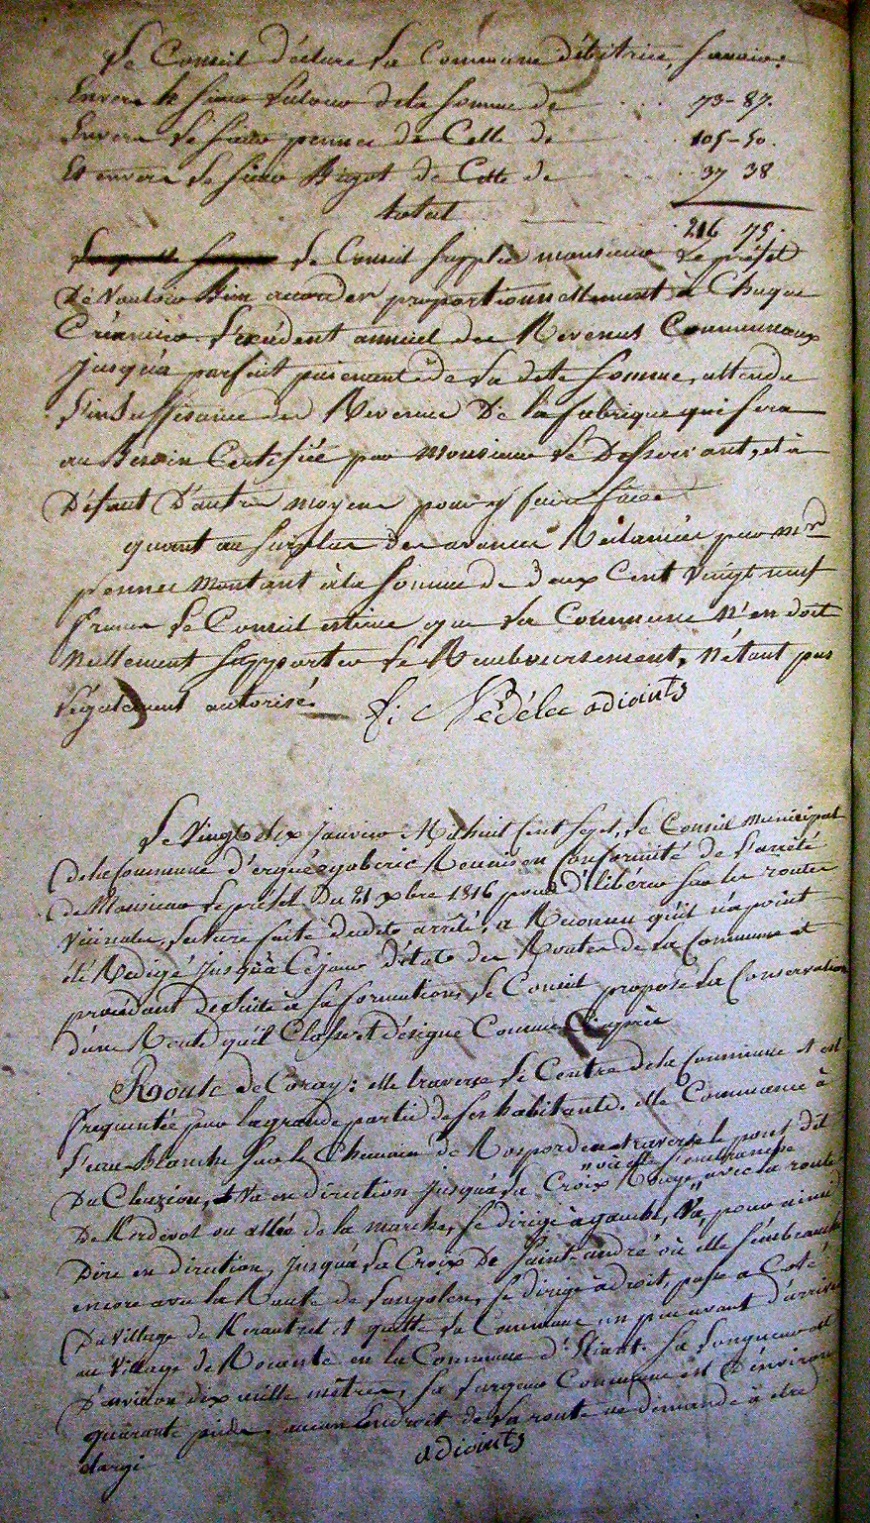 Le Conseil déclare la Commune débitrice, Savoir:
Envers le Sieur Salaun de la Somme de 73-87.
Envers le Sieur pennec de Celle de 105-50.
Et envers le Sieur Bigot de Celle de 37 38
total 216 75.
le Conseil supplie monsieur Le préfet
De Vouloir Bien accorder proportionnellement à Chaque
Créancier l'excédent annuel des Revenus Communaux
jusqu'à parfait paiement de la dette Somme, attendu
l'insuffisance des Revenus De la fabrique qui sera
au Besoin Certifiée par Monsieur le Desservant, et à
Défaut D'autres moyens pour y faire face
quant au surplus des avances Réclamées par Mr
pennec Montant à la Somme de deux Cent Vingt neuf
francs le Conseil estime que la Commune N'en doit
Nullement supporter le Remboursement, N'étant pas
légalement autorisé. Nédélec adjoints
Le Vingt dix janvier Mil huit Cent Sept, le Conseil Municipal
de la Commune d'ergué gabéric Réuni en Conformité de l'arrêté
de Monsieur le préfet Du 21 xbre 1816 pour délibérer sur les routes
Vicinales, lecture faite dudit arrêté, a Reconnu qu'il n'a point
été Rédigé jusqu'à Ce jour d'état des Routes de la Commune et
procédant de suite à sa formation, le Conseil propose la Conservation
d'une Route qu'il Classe et désigne Comme Ci après
Route de Coray: elle traverse le Centre de la Commune et est
frequentée par la grande partie de ses habitants. elle Commence à
l'eau Blanche sur le Chemin de Rosporden traverse le pont dit
Du Cleuziou, Va en direction jusqu'à la Croix Rouge, où elle s'embranche avec la route
De Kerdevot ou allée de la marche, se dirige à gauche, Va, pour ainsi
Dire en direction, jusqu'à la Croix De Saint andré où elle s'embranche
encore avec la Route de Langolen, se dirige à droit, passe a Coté
Du Village de Kerautret et quitte la Commune un peu avant d'arriver
au Village de en la Commune d'Elliant. Sa longueur est
D'environ dix mille mètres, Sa largeur Commune est D'environ
quarante pieds, aucun Endroit de la route ne demande à être
élargi adjoints